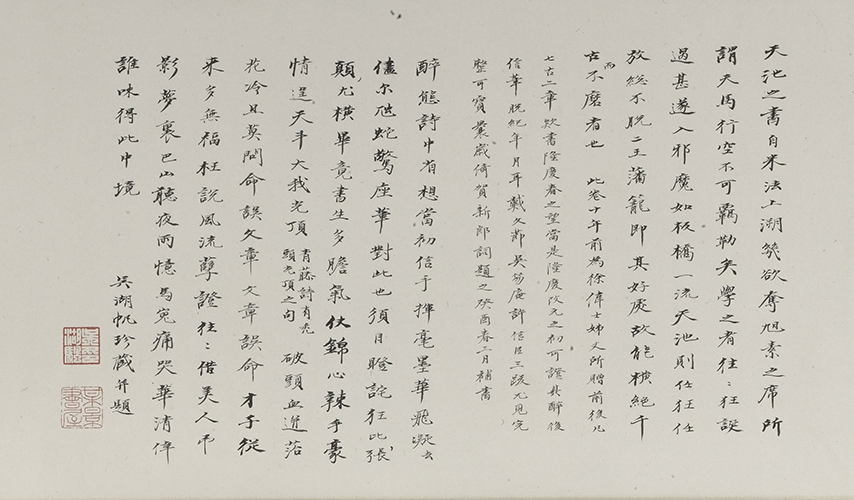 天池之書自米法上溯幾欲奪旭素之席所
謂天馬行空不可羈勒矣學之者往:狂誤
過甚遂入邪魔如板橋一流天池則任狂任
放總不脫二王藩籠即其好處故能橫絕千
古而不磨者也 此卷十年前為徐偉士姊丈所贈前後凡
七古二章款書隆慶春之望當是隆慶改元之初可證其醉後
信筆脫紀年月耳戴文節吳笏庵許信臣三跋尤見完
整可寶曩歲倚賀新郎詞題之癸酉春三月補書
醉態詩中省想當初信手揮毫墨華飛凝去
儘尔虺蛇驚座華對此也須目瞪詫狂比張
顛尤橫畢竟書生多膽氣仗錦心辣手豪
情逞天斗大我光頂青藤詩有禿頭光頂之句 破顋血迸落
花冷且莫問命誤文章文章誤命才子從
來多無福枉說風流孽證往:借美人弔
影夢裏巴山聽夜雨憶馬嵬痛哭華清倖
誰味得此中境 吳湖帆珍藏并題